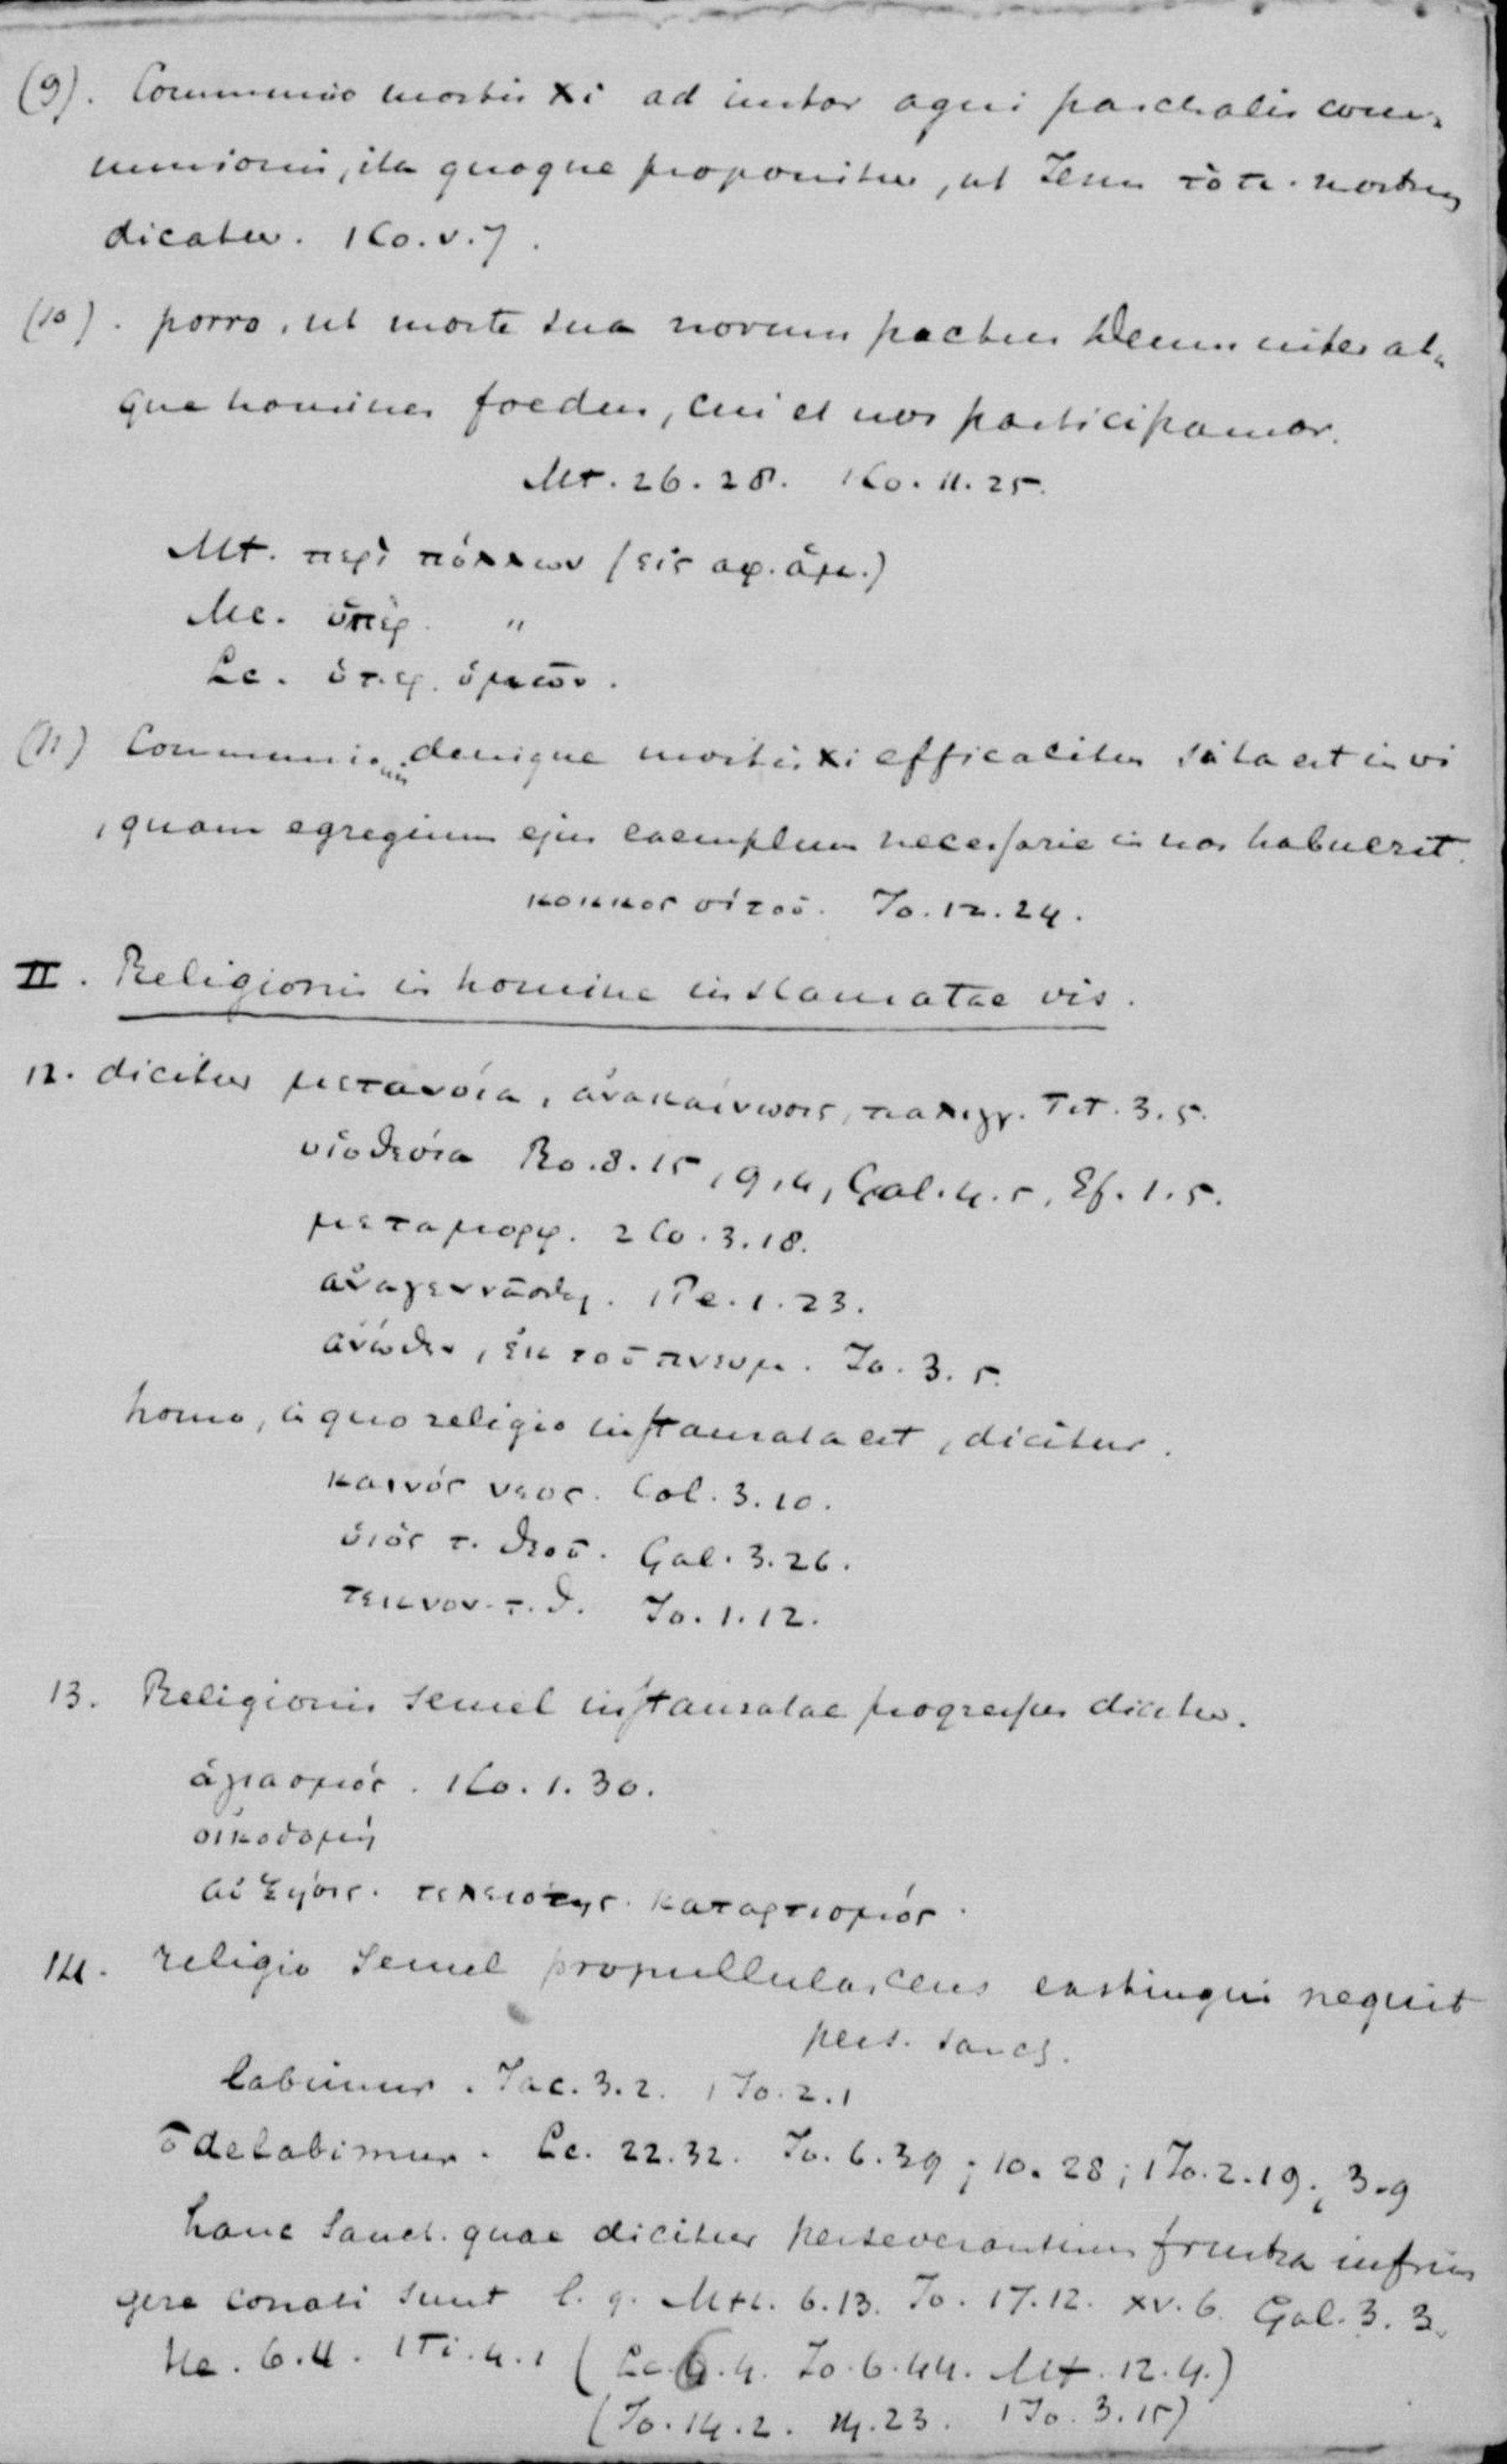 (9). Communio mortis Xi ad instar agni paschalis com-
munionis, ita quoque proponitur, ut Jesus τὸ π. nostrum
dicatur. 1 Co. v. 7.
(10). porro, ut morte sua novum pactus Deum inter at-
que homines foedus, cui et nos participamur.
Mt. 26. 28. 1 Co. 11. 25.
Mt. περὶ πόλλων (εἰς αφ. ἁμ.)
Mc. ὑπὲρ. "
Lc. ὑπερ. ὑμῶν.
(11) Communionis denique mortis Xi efficacitas sita est in vi
, quam egregium ejus exemplum necessarie in nos habuerit.
κοκκος σίτοῦ. Jo. 12. 24.
II. Religionis in homine instauratae vis.
12. dicitur μετανόια, ἀνακαίνωσις, παλιγγ. Tit. 3. 5.
υἱοθεσία Ro. 8. 15, 9, 4, Gal. 4. 5, Ef. 1. 5.
μεταμορφ. 2 Co. 3. 18.
ἀναγεννᾶσθαι. 1 Pe. 1. 23.
ἀνώθεν, ἐκ τοῦ πνευμ. Jo. 3. 5.
homo, in quo religio instaurata est, dicitur.
καινός νεος. Col. 3. 10.
ὑιὸς τ. θεοῦ. Gal. 3. 26.
τεκνον. τ. θ. Jo. 1. 12.
13. Religionis semel instauratae progressus dicitur.
ἁγιασμός. 1 Co. 1. 30.
οἰκοδομή
αὐξησις. τελειοτης. καταρτισμός.
14. religio semel propullulascens exstingui nequit
pers. sanct.
labimur. Jac. 3. 2. 1 Jo. 2. 1
ō delabimur. Lc. 22. 32. Jo. 6. 39; 10. 28; 1 Jo. 2. 19; 3. 9
hanc sanct. quae dicitur perseverantiam frustra infrin
gere conati sunt l. q. Mtt. 6. 13. Jo. 17. 12. XV. 6. Gal. 3. 3.
He. 6. 4. 1 Ti. 4. 1 (Lc. 6. 4. Jo. 6. 44. Mt. 12. 4.)
(Jo. 14. 2. 14. 23. 1 Jo. 3. 15)